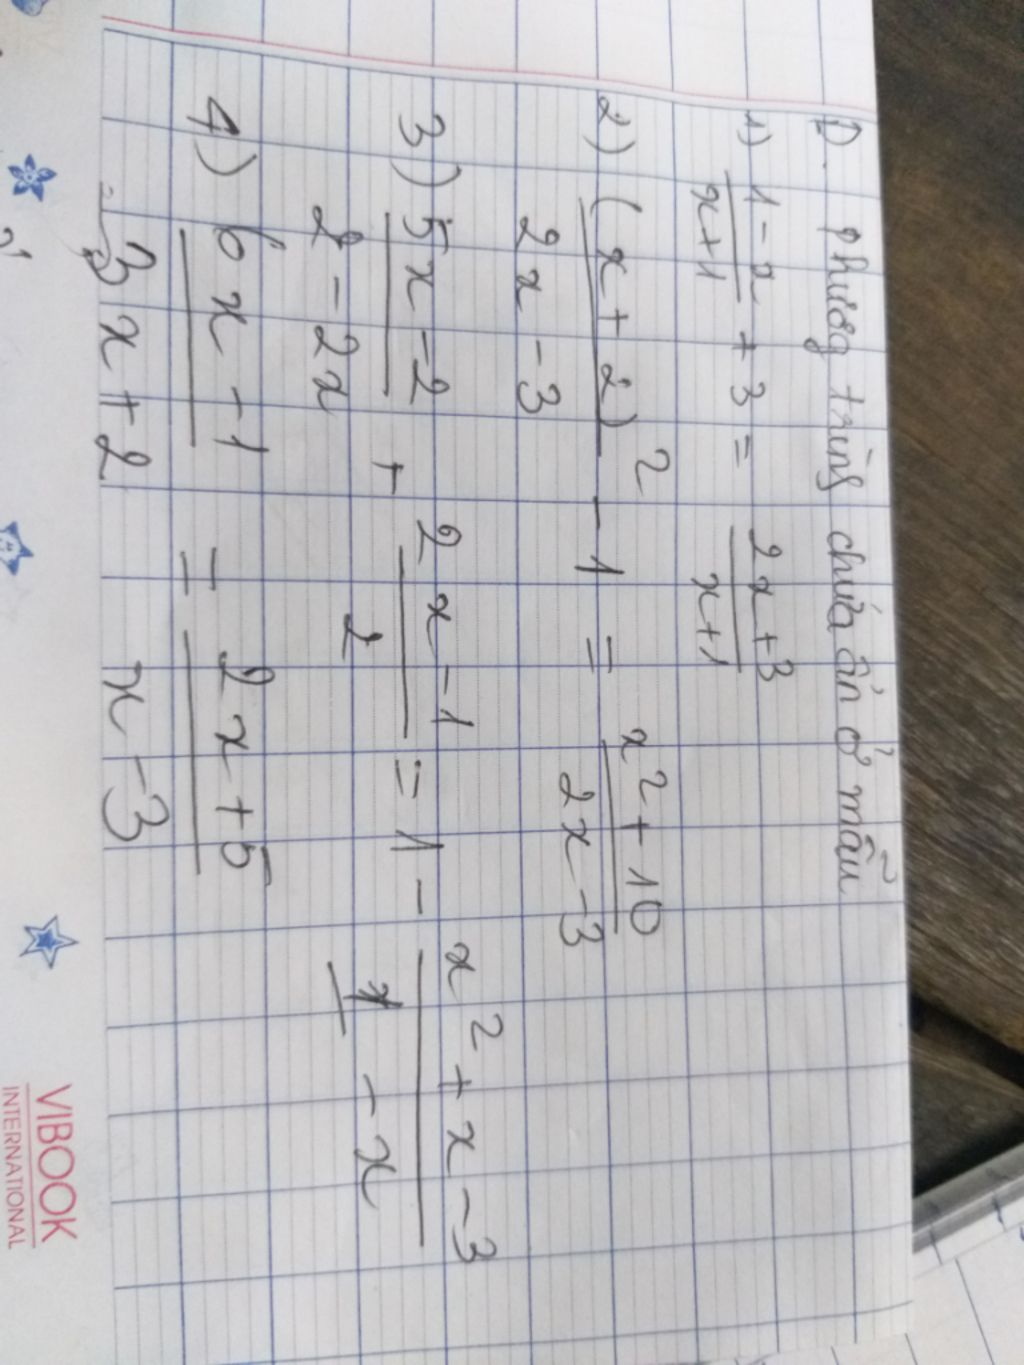 D. Phương trình chứa ẩn ở mẫu
1) \frac{1-x}{x+1} + 3 = \frac{2x+3}{x+1}
2) \frac{(x+2)^2}{2x-3} - 1 = \frac{x^2+10}{2x-3}
3) \frac{5x-2}{2-2x} + \frac{2x-1}{2} = 1 - \frac{x^2+x-3}{1-x}
4) \frac{6x-1}{3x+2} = \frac{2x+5}{x-3}
VIBOOK
INTERNATIONAL